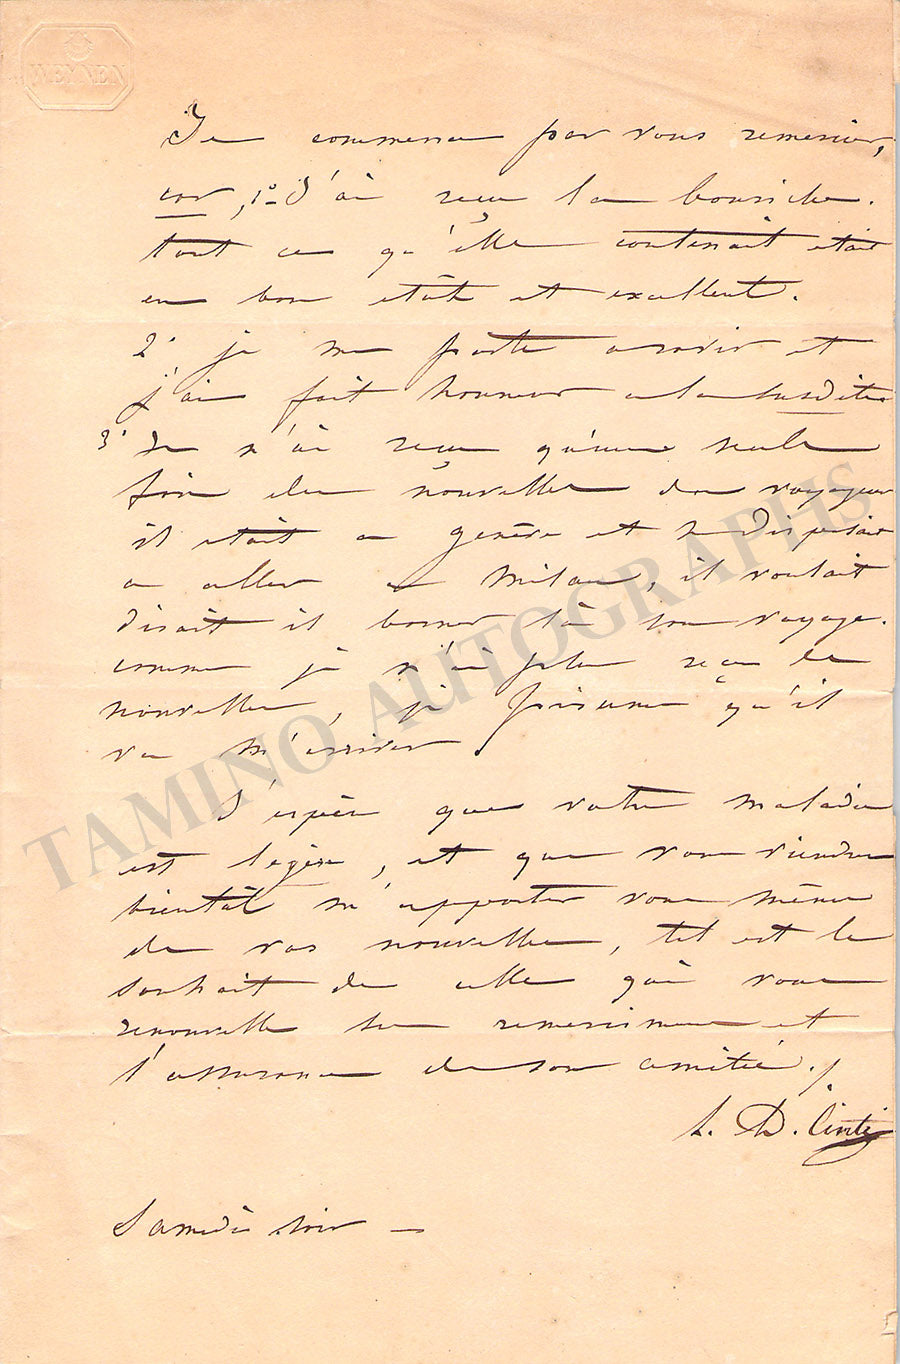 WEYNEN
Je commence par vous remercier,
car, 1º J'ai recu la bourriche.
tout ce qu'elle contenait etait
en bon etât et excellent.
2º je me porte a ravir et
j'ai fait honneur a la susdite
3º Je n'ai recu qu'une seule
fois des nouvelles du voyageur
il etait a genève et se disposait
a aller a Milan, il voulait
disait il borner là son voyage.
comme je n'ai plus reçu de
nouvelles, je présume qu'il
va m'arriver.
J'espère que votre maladie
est légère, et que vous viendrez
bientôt m'apporter vous même
de vos nouvelles, tel est le
souhait de celle qui vous
renouvelle ses remerciemens et
l'assurance de son amitié./.
L. D. Cinti
Samedi soir —
TAMINO AUTOGRAPHS